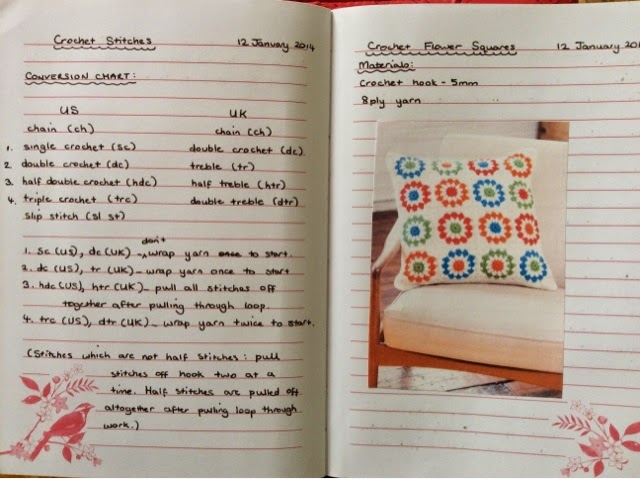 Crochet Stitches 12 January 2014
CONVERSION CHART:
US UK
chain (ch) chain (ch)
1. single crochet (sc) double crochet (dc)
2. double crochet (dc) treble (tr)
3. half double crochet (hdc) half treble (htr)
4. triple crochet (trc) double treble (dtr)
slip stitch (sl st)
don't
1. sc (US), dc (UK) - wrap yarn once to start.
2. dc (US), tr (UK) - wrap yarn once to start
3. hdc (US), htr (UK) - pull all stitches off
together after pulling through loop.
4. trc (US), dtr (UK) - wrap yarn twice to start.
(Stitches which are not half stitches: pull
stitches off hook two at a
time. Half stitches are pulled off
altogether after pulling loop through
work.)
Crochet Flower Squares 12 January 201
Materials:
Crochet hook - 5mm
8ply yarn